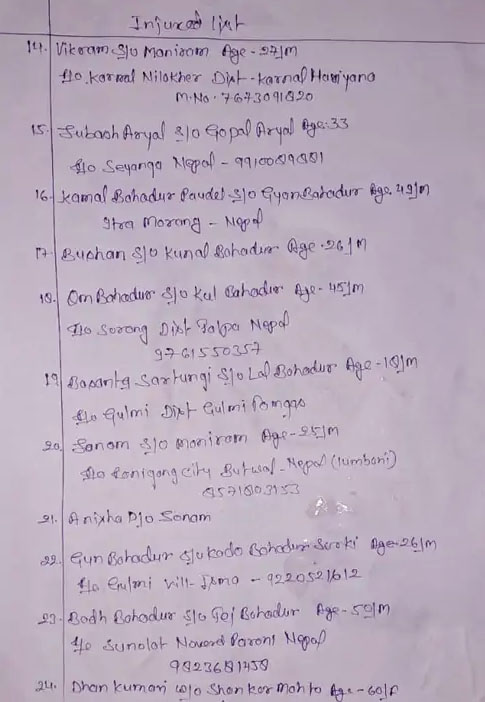 Injured list
14. Vikram S/o Maniram Age - 27/M
R/o Karnal Nilokher Dist - Karnal Hariyana
M.No. 7673091820
15. Subash Aryal S/o Gopal Aryal Age:33
R/o Seyanga Nepal - 9910089881
16. Kamal Bahadur Paudel S/o Gyan Bahadur Age 42/M
Morang - Nepal
17. Bushan S/o Kunal Bahadur Age - 26/M
18. Om Bahadur S/o Kul Bahadur Age - 45/M
R/o Sorong Dist Palpa Nepal
9761550357
19. Basanta Sartungi S/o Lal Bahadur Age - 18/M
R/o Gulmi Dist Gulmi
20. Sanam S/o Maniram Age - 25/M
R/o Ranigang city Butwal - Nepal (lumbani)
8571803153
21. Anixha D/o Sonam
22. Gun Bahadur S/o Kado Bahadur Saroki Age-26/M
R/o Gulmi Vill- Isma - 9220521612
23. Badh Bahadur S/o Tej Bahadur Age - 58/M
R/o Sunolat Naword Parons Nepal
9823681458
24. Dhan Kumari w/o Shankar Mahto Age - 60/F